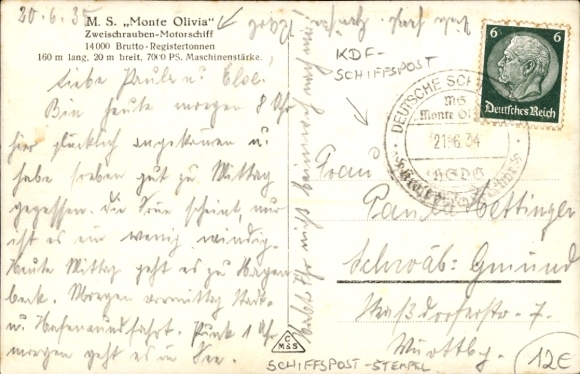 20.6.35
M. S. „Monte Olivia"
Zweischrauben-Motorschiff
14000 Brutto-Registertonnen
160 m lang, 20 m breit, 7000 PS. Maschinenstärke.
Liebe Paula u. Else.
Bin heute morgen 8 Uhr
hier glücklich angekommen u.
habe soeben gut zu Mittag
gegessen. Die Sonne scheint, nur
ist es ein wenig windig.
Heute Mittag geht es zu Hagen
beck. Morgen vormittag Stadt-
u. Hafenrundfahrt. Punkt 1 Uhr
morgen geht es in See.
KDF-
SCHIFFSPOST
DEUTSCHE SCH
MS
Monte Ol
21.6.34
HSDG
6 6
Deutsches Reich
Frau
Paula Hettinger
Schwäb. Gmünd
7.
Württbg.
C M&S
SCHIFFSPOST-STEMPEL
12€